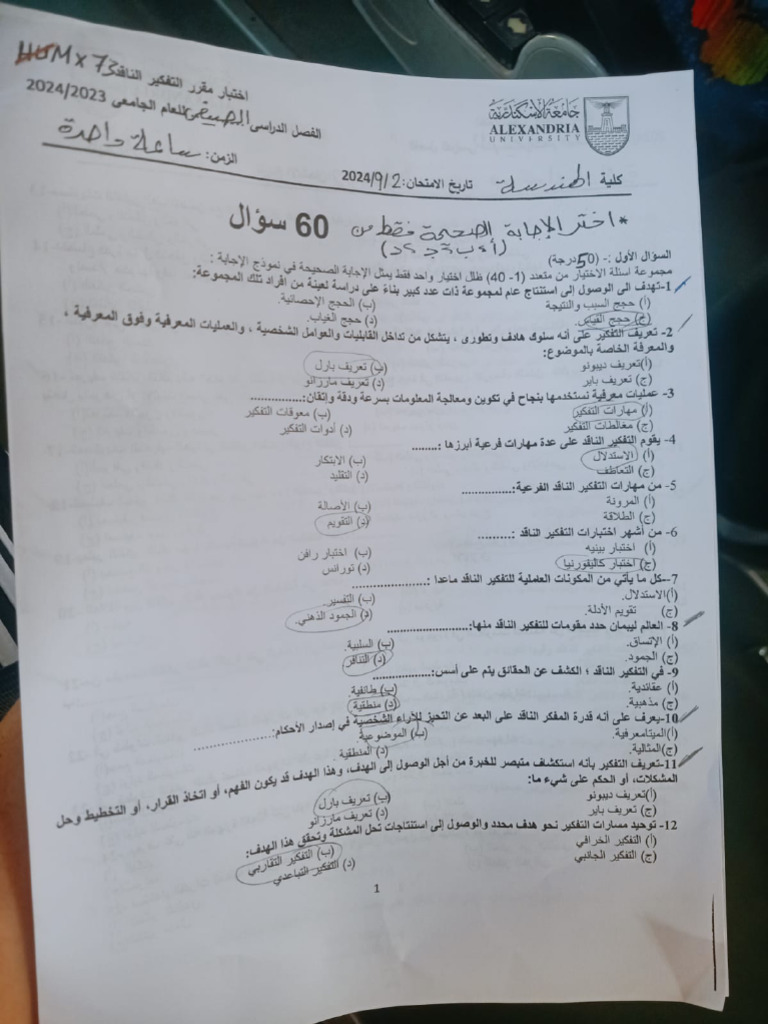 HUM x 73 اختبار مقرر التفكير الناقد
الفصل الدراسى الصيفى للعام الجامعى 2024/2023
الزمن: ساعة واحدة
جامعة الإسكندرية
ALEXANDRIA
UNIVERSITY
كلية الهندسة تاريخ الامتحان: 2024/9/2
* اختر الإجابة الصحيحة فقط من 60 سؤال
(أ، ب، ج، د)
السؤال الأول :- (50 درجة)
مجموعة اسئلة الاختيار من متعدد (1- 40) ظلل اختيار واحد فقط يمثل الإجابة الصحيحة في نموذج الإجابة :
1-تهدف الى الوصول إلى استنتاج عام لمجموعة ذات عدد كبير بناءً على دراسة لعينة من افراد تلك المجموعة:
(أ) حجج السبب والنتيجة (ب) الحجج الإحصائية.
(ج) حجج القياس. (د) حجج الغياب.
2- تعريف التفكير على أنه سلوك هادف وتطورى ، يتشكل من تداخل القابليات والعوامل الشخصية ، والعمليات المعرفية وفوق المعرفية ،
والمعرفة الخاصة بالموضوع:
(أ)تعريف ديبونو (ب) تعريف بارل
(ج) تعريف باير (د) تعريف مارزانو
3- عمليات معرفية نستخدمها بنجاح في تكوين ومعالجة المعلومات بسرعة ودقة وإتقان:..............
(أ) مهارات التفكير (ب) معوقات التفكير
(ج) مغالطات التفكير (د) أدوات التفكير
4- يقوم التفكير الناقد على عدة مهارات فرعية أبرزها :........
(أ) الاستدلال (ب) الابتكار
(ج) التعاطف (د) التقليد
5- من مهارات التفكير الناقد الفرعية:..............
(أ) المرونة (ب) الأصالة
(ج) الطلاقة (د) التقويم
6- من أشهر اختبارات التفكير الناقد :.........
(أ) اختبار بينيه (ب) اختبار رافن
(ج) اختبار كاليفورنيا (د) تورانس
7--كل ما يأتي من المكونات العاملية للتفكير الناقد ماعدا :..................
(أ)الاستدلال. (ب) التفسير.
(ج) تقويم الأدلة. (د) الجمود الذهني.
8- العالم ليبمان حدد مقومات للتفكير الناقد منها:....................
(أ) الإتساق. (ب) السلبية.
(ج) الجمود. (د) التنافر
9- في التفكير الناقد ؛ الكشف عن الحقائق يتم على أسس:....................
(أ) عقائدية. (ب) طائفية.
(ج) مذهبية. (د) منطقية.
10-يعرف على أنه قدرة المفكر الناقد على البعد عن التحيز للآراء الشخصية في إصدار الأحكام:....................
(أ)الميتامعرفية. (ب) الموضوعية
(ج)المثالية. (د) المنطقية
11-تعريف التفكير بأنه استكشاف متبصر للخبرة من أجل الوصول إلى الهدف، وهذا الهدف قد يكون الفهم، أو اتخاذ القرار، أو التخطيط وحل
المشكلات، أو الحكم على شيء ما:
(أ)تعريف ديبونو (ب) تعريف بارل
(ج) تعريف باير (د) تعريف مارزانو
12- توحيد مسارات التفكير نحو هدف محدد والوصول إلى استنتاجات تحل المشكلة وتحقق هذا الهدف:
(أ) التفكير الخرافي (ب) التفكير التقاربي
(ج) التفكير الجانبي (د) التفكير التباعدي
1